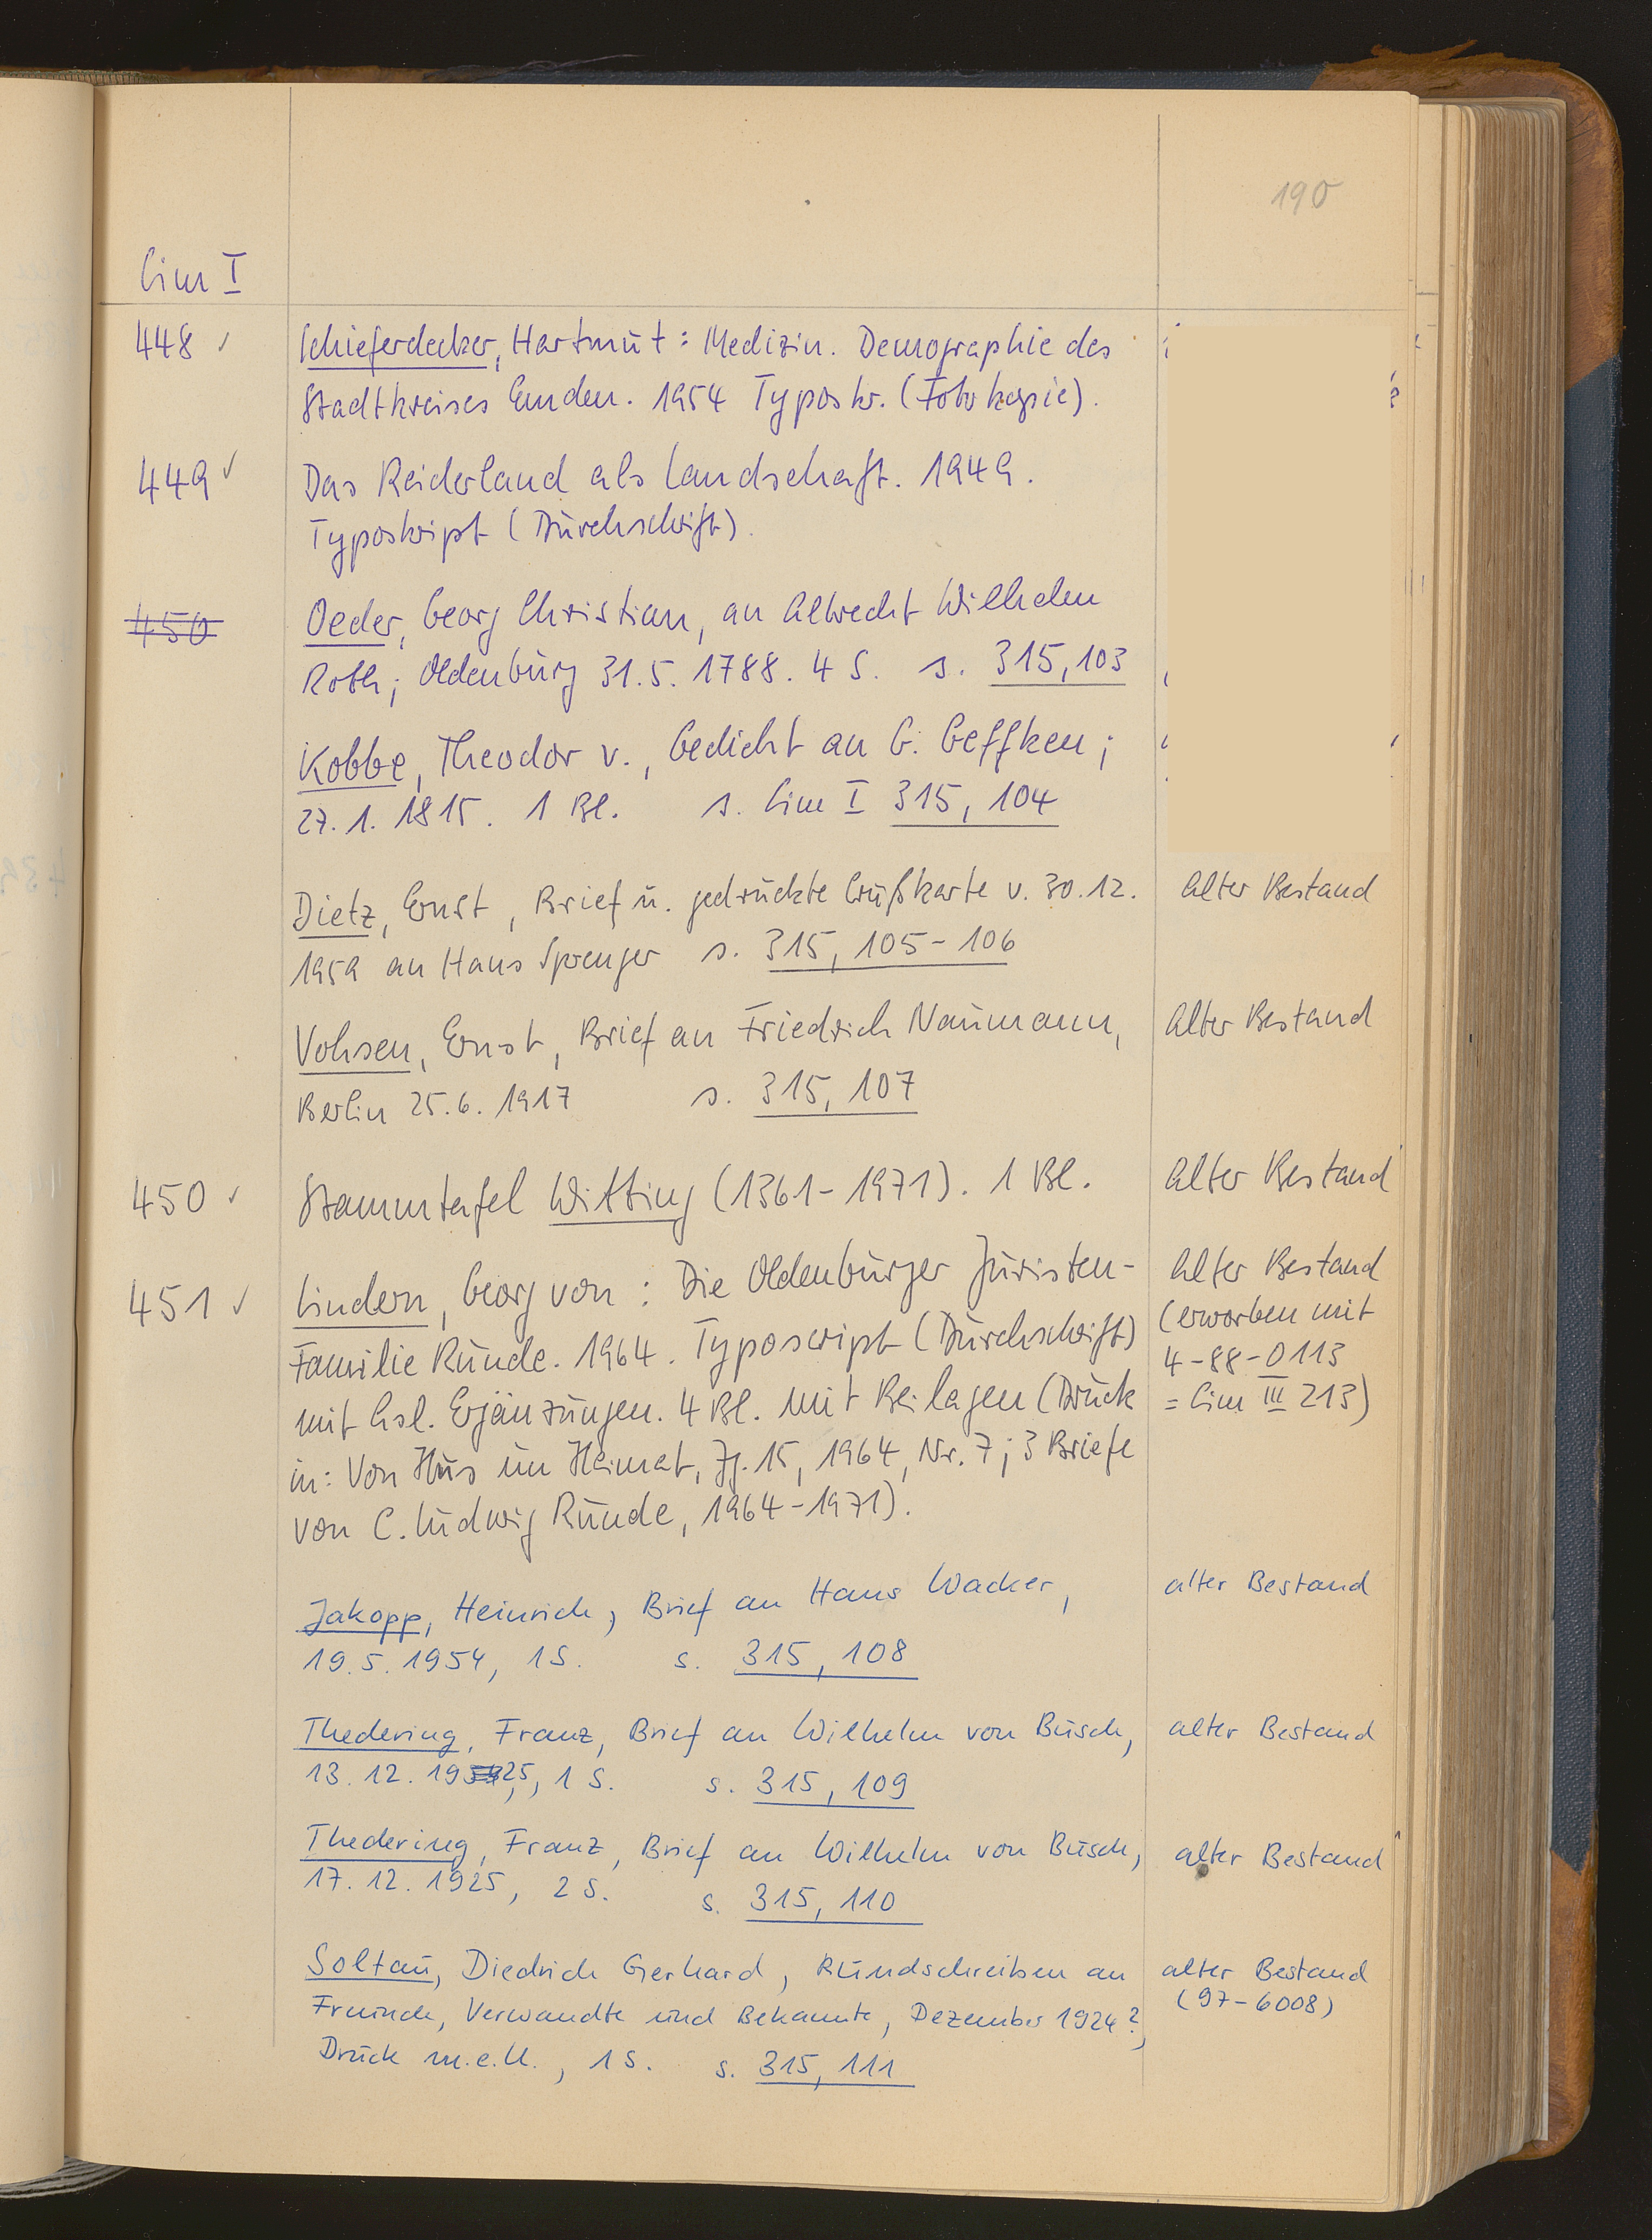 190
Cim I
448 ✓ Schieferdecker, Hartmut: Medizin. Demographie des
Stadtkreises Emden. 1954 Typoskr. (Fotokopie).
449 ✓ Das Reiderland als Landschaft. 1949.
Typoskript (Durchschrift).
450 Oeder, Georg Christian, an Albrecht Wilhelm
Roth; Oldenburg 31.5.1788. 4 S. s. 315,103
Kobbe, Theodor v., Gedicht an G. Geffken;
27.1.1815. 1 Bl. s. Cim I 315, 104
Dietz, Ernst, Brief u. gedruckte Grußkarte v. 30.12. Alter Bestand
1959 an Hans Sprenger s. 315, 105-106
Vohsen, Ernst, Brief an Friedrich Naumann, Alter Bestand
Berlin 25.6.1917 s. 315, 107
450 ✓ Stammtafel Witting (1361-1971). 1 Bl. Alter Bestand
451 ✓ Lindern, Georg von: Die Oldenburger Juristen- Alter Bestand
Familie Runde. 1964. Typoscript (Durchschrift) (erworben mit
4-88-0113
mit hsl. Ergänzungen. 4 Bl. Mit Beilagen (Druck = Cim III 213)
in: Von Hus un Heimat, Jg. 15, 1964, Nr. 7; 3 Briefe
von C. Ludwig Runde, 1964-1971).
Jakopp, Heinrich, Brief an Hans Wacker, alter Bestand
19.5.1954, 1 S. s. 315, 108
Thedering, Franz, Brief an Wilhelm von Busch, alter Bestand
13.12.1925, 1 S. s. 315, 109
Thedering, Franz, Brief an Wilhelm von Busch, alter Bestand
17.12.1925, 2 S. s. 315, 110
Soltau, Diedrich Gerhard, Rundschreiben an alter Bestand
Freunde, Verwandte und Bekannte, Dezember 1924?, (97-6008)
Druck m.e.U., 1 S. s. 315, 111